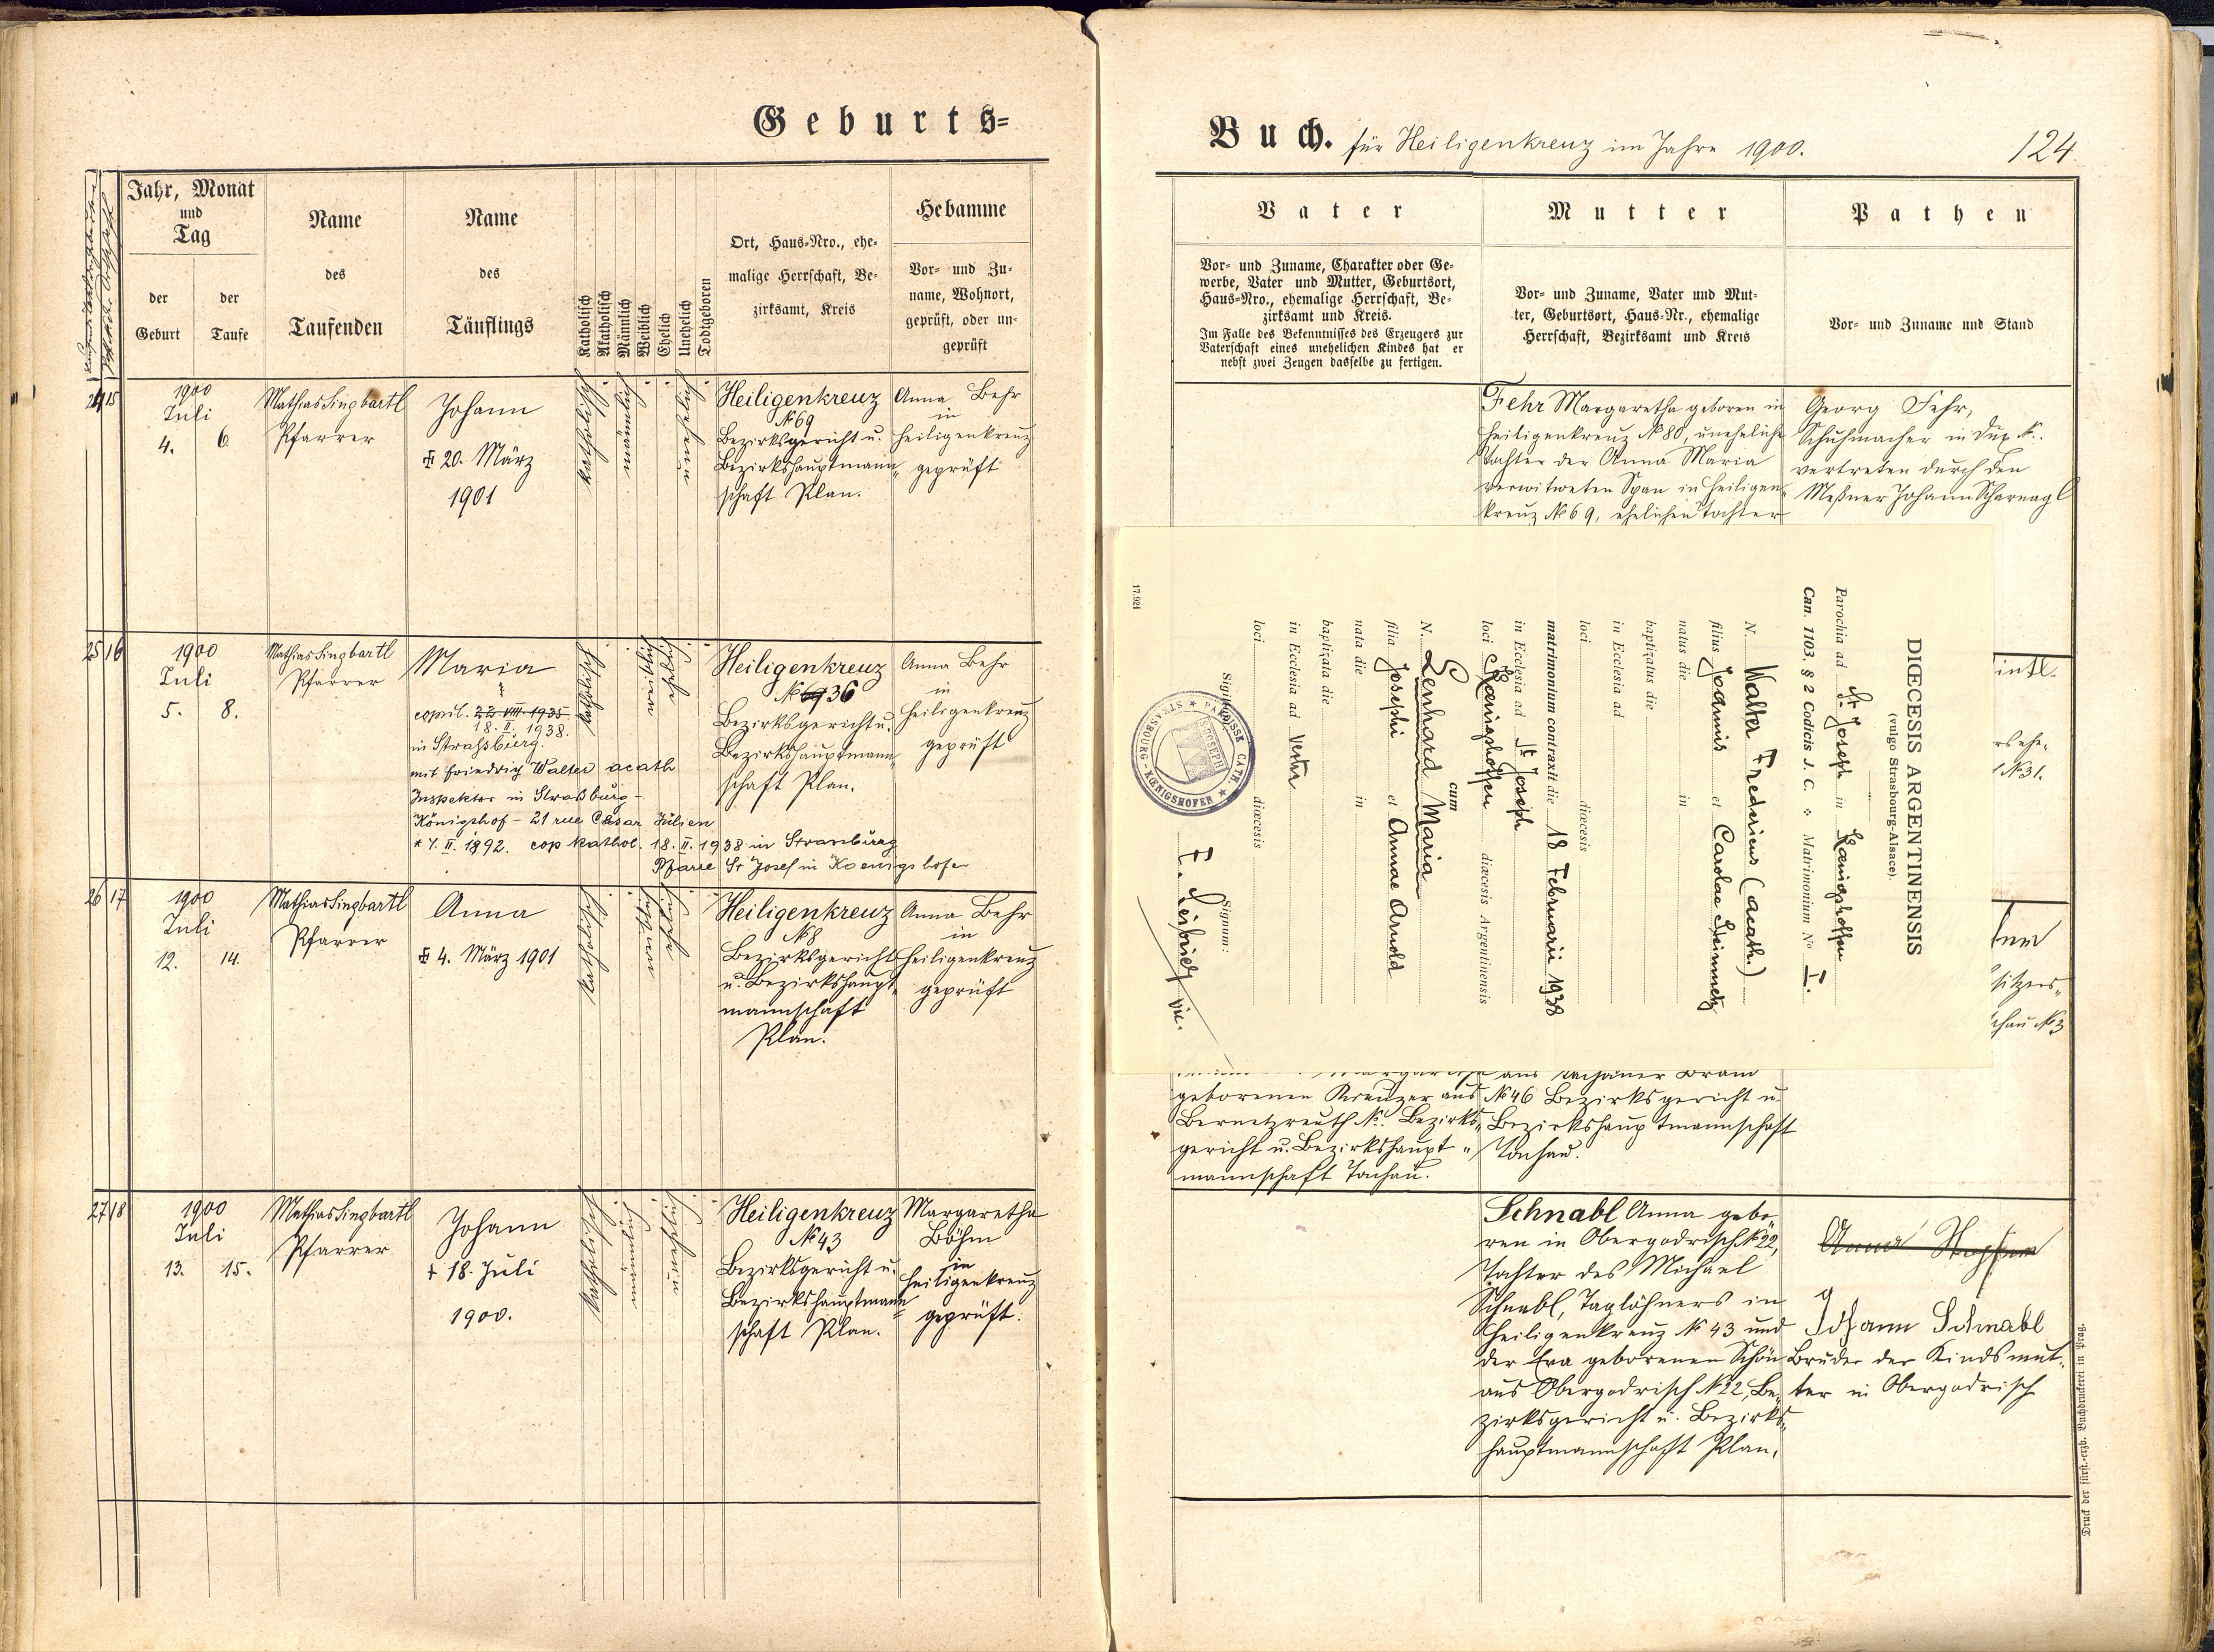 Geburts=
Jahr, Monat
und
Tag
der
Geburt
der
Taufe
Name
des
Taufenden
Name
des
Täuflings
Katholisch
Akatholisch
Männlich
Weiblich
Ehelich
Unehelich
Todtgeboren
Ort, Haus-Nro., ehe-
malige Herrschaft, Be-
zirksamt, Kreis
Hebamme
Vor- und Zu-
name, Wohnort,
geprüft, oder un-
geprüft
24 15
1900
Juli
4. 6.
Mathias Singbartl
Pfarrer
Johann
20. März
1901
katholisch
Heiligenkreuz
№ 69
Bezirksgericht u.
Bezirkshauptmann-
schaft Plan.
Anna Behr
in
Heiligenkreuz
geprüft
25 16
1900
Juli
5. 8.
Mathias Singbartl
Pfarrer
Maria
copul. 22. VIII. 1935
18. II. 1938.
in Straßburg.
mit Friedrich Walter acath
Inspektor in Straßburg-
Königshof - 21 rue Cäsar Julien
* 7. II. 1892. cop kathol. 18. II. 1938 in Strassburg
Pfarre St Josef in Koenigshofen
Heiligenkreuz
№ 69 36
Bezirksgericht u.
Bezirkshauptmann-
schaft Plan.
Anna Behr
in
Heiligenkreuz
geprüft
26 17
1900
Juli
12. 14.
Mathias Singbartl
Pfarrer
Anna
4. März 1901
Heiligenkreuz
№ 8
Bezirksgericht
u. Bezirkshaupt-
mannschaft
Plan.
Anna Behr
in
Heiligenkreuz
geprüft
27 18
1900
Juli
13. 15.
Mathias Singbartl
Pfarrer
Johann
† 18. Juli
1900.
katholisch
Heiligenkreuz
№ 43
Bezirksgericht u.
Bezirkshauptmann-
schaft Plan.
Margaretha
Böhm
in
Heiligenkreuz
geprüft.
Buch. für Heiligenkreuz im Jahre 1900.
124.
Vater
Vor- und Zuname, Charakter oder Ge-
werbe, Vater und Mutter, Geburtsort,
Haus-Nro., ehemalige Herrschaft, Be-
zirksamt und Kreis.
Im Falle des Bekenntnisses des Erzeugers zur
Vaterschaft eines unehelichen Kindes hat er
nebst zwei Zeugen dasselbe zu fertigen.
Mutter
Vor- und Zuname, Vater und Mut-
ter, Geburtsort, Haus-Nr., ehemalige
Herrschaft, Bezirksamt und Kreis
Pathen
Vor- und Zuname und Stand
Fehr Margaretha geboren in
Heiligenkreuz № 80, uneheliche
Tochter der Anna Maria
verwitweten Span in Heiligen-
kreuz № 69, ehelichen Tochter
Georg Fehr,
Schuhmacher in Dux №.
vertreten durch den
Meßner Johann Scharnagl
DIŒCESIS ARGENTINENSIS
(vulgo Strasbourg-Alsace).
Parochia ad St. Joseph in Kœnigshoffen
Can. 1103, § 2 Codicis J. C. Matrimonium N° I.
N. Walter Fredericus (acath.)
filius Joannis et Carolae Steinmetz
natus die in
baptizatus die
in Ecclesia ad
loci diœcesis
matrimonium contraxit die 18 Februarii 1938
in Ecclesia ad St Joseph
loci Kœnigshoffen diœcesis Argentinensis
cum
N. Lenhard Maria
filia Josephi et Annae Arnold
nata die in
baptizata die
in Ecclesia ad
loci diœcesis
Sigillum
Signum:
PAROISSE CATH. ST JOSEPH
STRASBOURG - KŒNIGSHOFEN
17.921
№ 31.
geborenen Kreuzer aus
Bernetzreuth №. Bezirks-
gericht u. Bezirkshaupt-
mannschaft Tachau.
№ 46 Bezirksgericht u.
Bezirkshauptmannschaft
Tachau.
Schnabl Anna gebo-
ren in Obergodrisch № 22,
Tochter des Michael
Schnabl, Taglöhners in
Heiligenkreuz № 43 und
der Eva geborenen Schön
aus Obergodrisch № 22, Be-
zirksgericht u. Bezirks-
hauptmannschaft Plan.
Johann Schnabl
Bruder der Kindsmut-
ter in Obergodrisch
Druck der fürst.-erzb. Buchdruckerei in Prag.